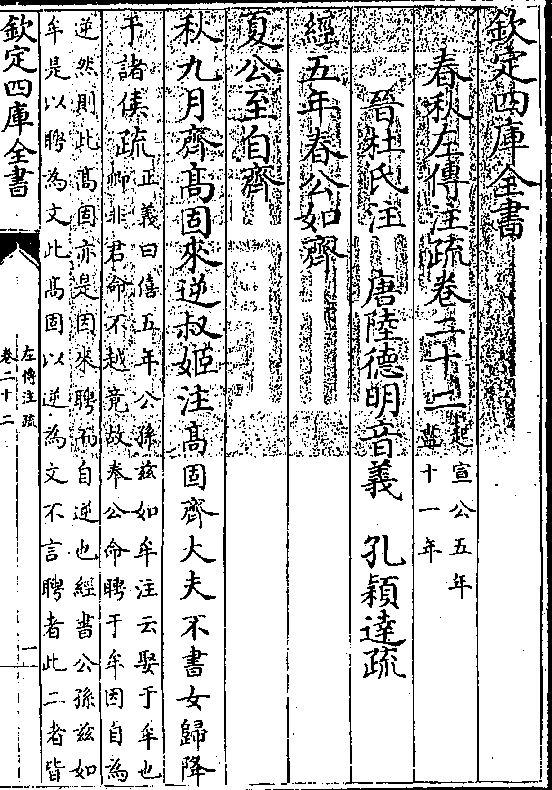 欽定四庫全書
春秋左傳注疏卷二十二 起宣公五年
盡十一年
晉杜氏注 唐陸德明音義 孔穎達疏
經五年春公如齊
夏公至自齊
秋九月齊髙固來逆叔姬注髙固齊大夫不書女歸降
于諸侯疏正義曰僖五年公孫兹如牟注云娶于牟也
卿非君命不越竟故奉公命聘于牟因自為
逆然則此髙固亦是因來聘而自逆也經書公孫兹如
牟是以聘為文此髙固以逆為文不言聘者此二者皆
欽定四庫全書
左傳注疏
卷二十二
一